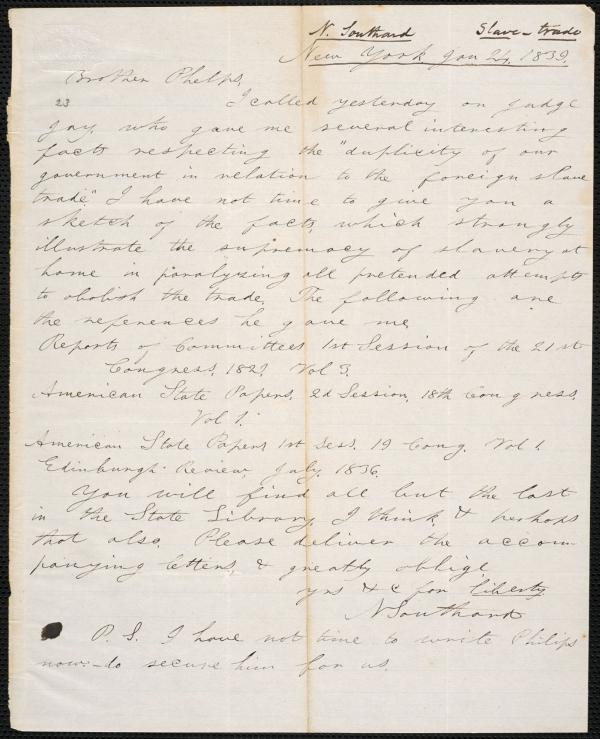 N. Southard Slave-trade
New York Jan 24, 1839.
Brother Phelps,
23 I called yesterday on Judge
Jay, who gave me several interesting
facts respecting the "duplicity of our
government in relation to the foreign slave
trade." I have not time to give you a
sketch of the facts, which strongly
illustrate the supremacy of slavery at
home in paralyzing all pretended attempts
to abolish the trade. The following are
the references he gave me
Reports of Committees 1st Session of the 21st
Congress, Vol 3.
American State Papers, 2d Session, 18th Congress.
Vol 1.
American State Papers 1st Sess. 19 Cong. Vol 1.
Edinburgh Review, July, 1836.
You will find all but the last
in the State Library, I think, & perhaps
that also. Please deliver the accom-
panying letters, & greatly oblige
yrs &c for liberty
N Southard
P. S. I have not time to write Philips
now - do secure him for us.